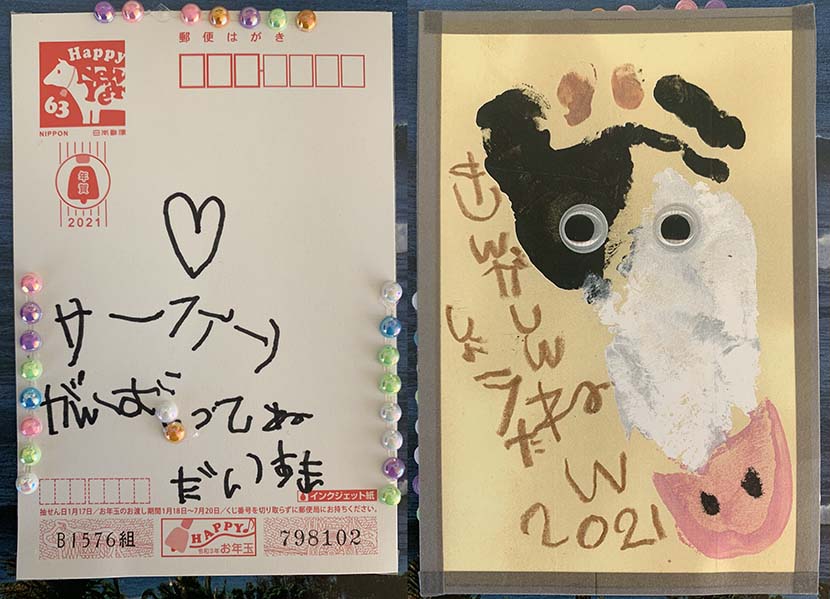 Happy
New
Year
63
NIPPON 日本郵便
郵便はがき
年賀
2021
サーフィン
がんばってね
だいすき
インクジェット紙
抽せん日1月17日／お年玉のお渡し期間1月18日〜7月20日／くじ番号を切り取らずに郵便局にお持ちください。
B1576組
HAPPY♪
令和3年 お年玉
798102
2021